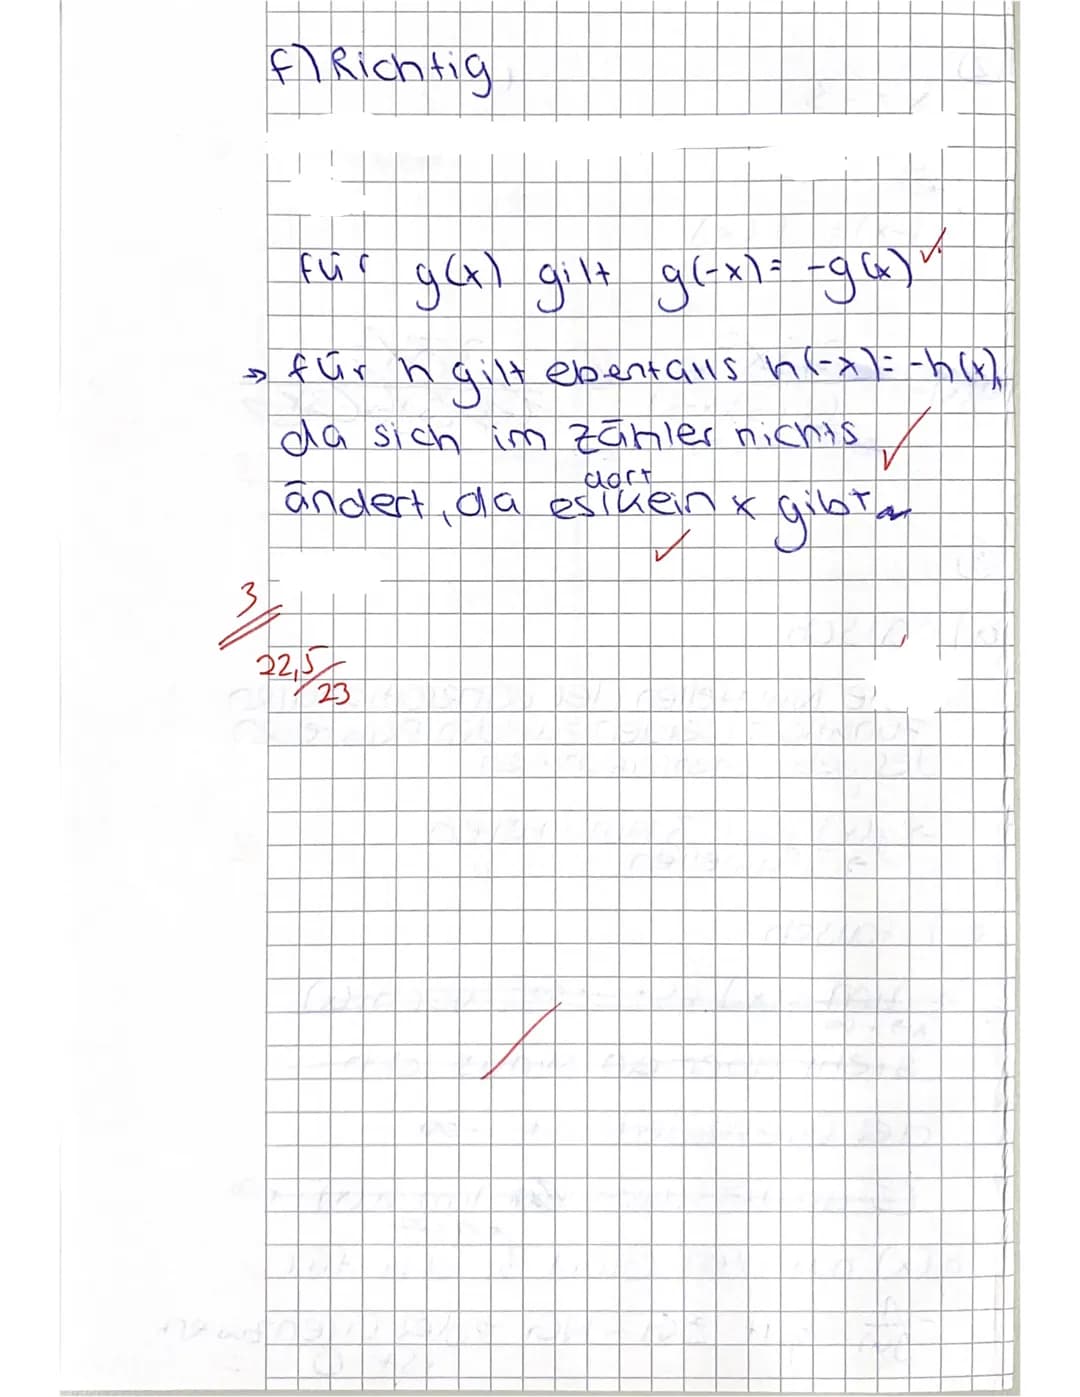 f) Richtig
für g(x) gilt g(-x) = -g(x) ✓
→ für h gilt ebenfalls h(-x) = -h(x),
da sich im Zähler nichts ✓
dort
ändert, da es kein x gibt
✓
3
22,5/23